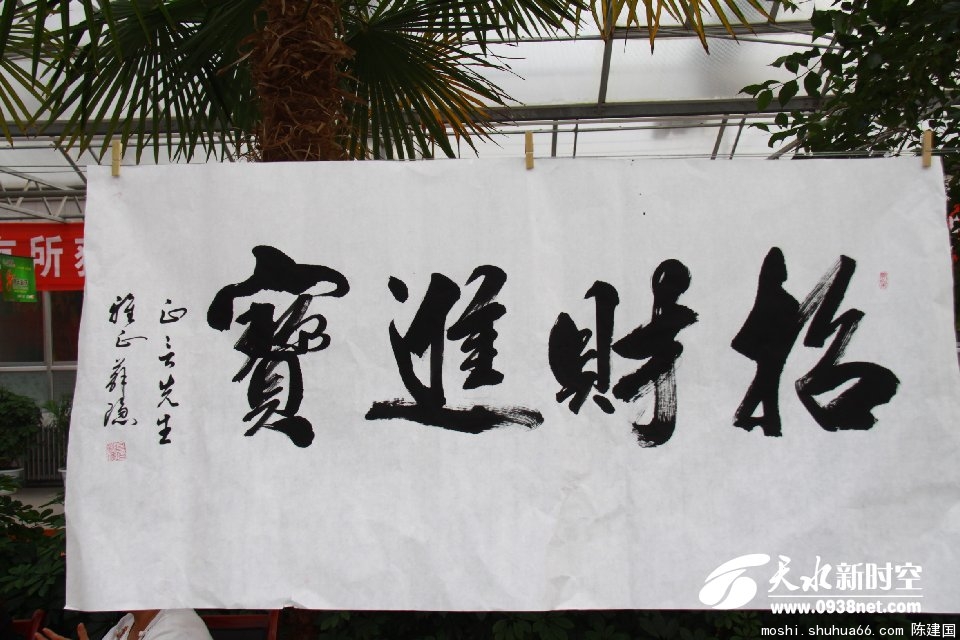 招財進寶
正言先生
雅正
所
天水新时空
www.0938net.com
moshi.shuhua66.com 陈建国